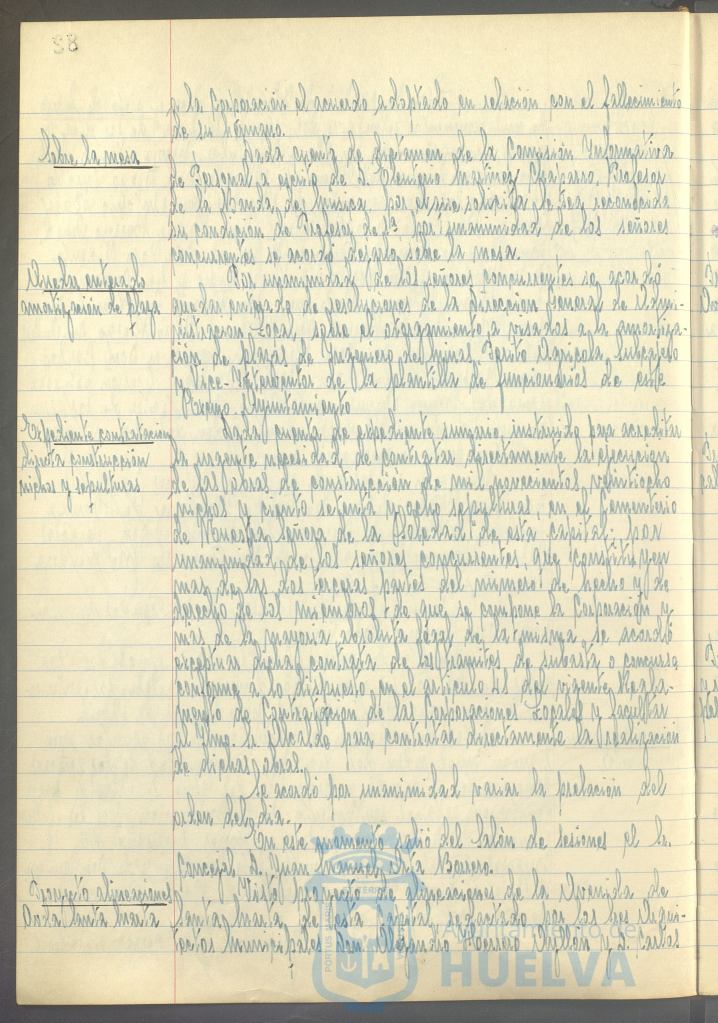 38
a la Corporación el acuerdo adoptado en relación con el fallecimiento
de su hermano.
Sobre la mesa
Dada cuenta de dictamen de la Comisión Informativa
de Personal a escrito de D. Martínez Chaparro, Profesor
de la Banda de Música por el que solicita le sea reconocida
su condición de Profesor de 1ª, por unanimidad de los señores
concurrentes se acordó dejarlo sobre la mesa.
Quedar enterado
amortización de plaza
Por unanimidad de los señores concurrentes se acordó
quedar enterado de resoluciones de la Dirección General de Admi-
nistración Local, sobre el otorgamiento a visados a la amortiza-
ción de plazas de Ingeniero de Minas, Perito Agrícola, Subcajero
y Vice-Interventor de la plantilla de funcionarios de este
Excmo. Ayuntamiento
Expediente contratación
directa construcción
nichos y sepulturas
Dada cuenta de expediente sumario, instruido para acreditar
la urgente necesidad de contratar directamente la ejecución
de las obras de construcción de mil novecientos veintiocho
nichos y ciento setenta y ocho sepulturas, en el Cementerio
de Nuestra Señora de la Soledad de esta capital; por
unanimidad de los señores concurrentes, que constituyen
mas de las dos terceras partes del número de hecho y de
derecho de los miembros de que se compone la Corporación y
mas de la mayoría absoluta legal de la misma, se acordó
exceptuar dicha contrata de los trámites de subasta o concurso
conforme a lo dispuesto en el artículo 41 del vigente Regla-
mento de Contratación de las Corporaciones Locales y facultar
al Ilmo. Sr. Alcalde para contratar directamente la realización
de dichas obras.
Se acordó por unanimidad variar la prelación del
orden del día.
En este momento salió del Salón de Sesiones el Sr.
Concejal D. Juan Manuel Borrero.
Proyecto alineaciones
Avda Santa Marta
Visto proyecto de alineaciones de la Avenida de
Santa Marta de esta capital, redactado por los tres Arqui-
tectos Municipales don Alejandro Herrero Ayllón y D. Carlos
Ayuntamiento de
HUELVA